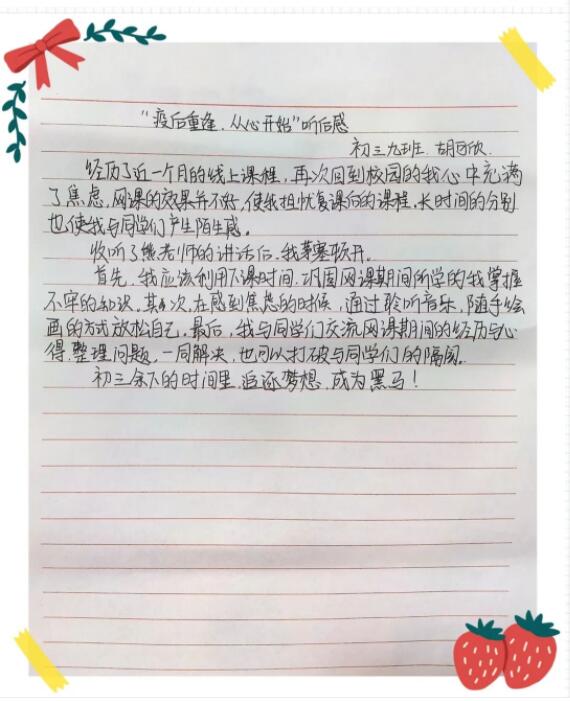 “疫后重逢，从心开始”听后感
初三九班 胡可欣
经历了近一个月的线上课程，再次回到校园的我心中充满
了焦虑，网课的效果并不好，使我担忧复课后的课程，长时间的分别
也使我与同学们产生陌生感。
收听了熊老师的讲话后，我茅塞顿开。
首先，我应该利用下课时间，巩固网课期间所学的我掌握
不牢的知识。其次，在感到焦虑的时候，通过聆听音乐，随手绘
画的方式放松自己。最后，我与同学们交流网课期间的经历与心
得，整理问题，一同解决，也可以打破与同学们的隔阂。
初三余下的时间里，追逐梦想，成为黑马！